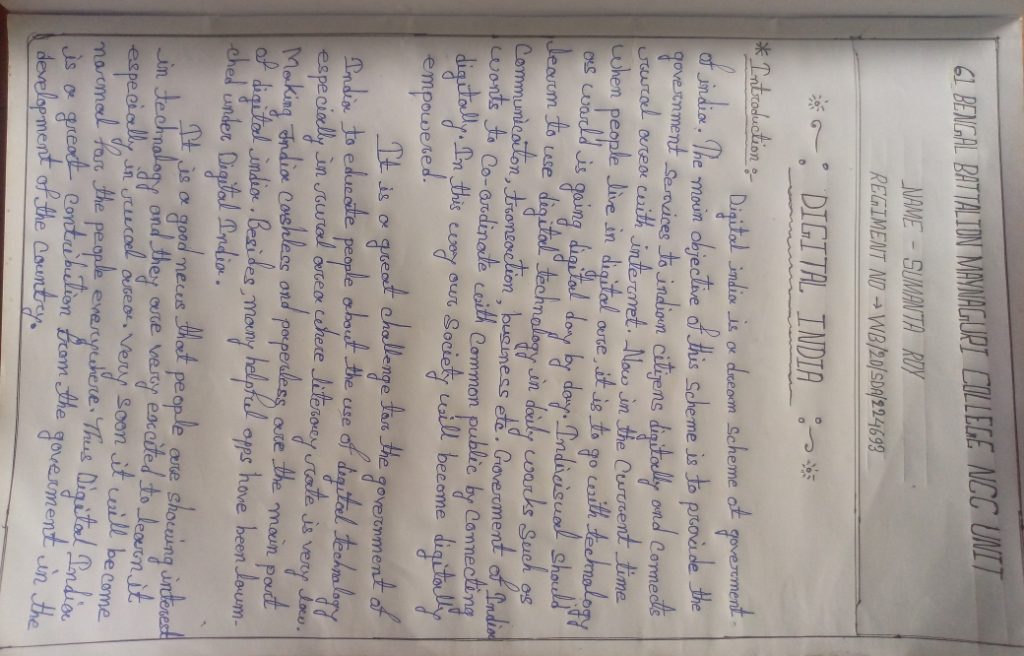 61 BENGAL BATTALION MAYNAGURI COLLEGE NCC UNIT
NAME - SUMANTA RAY
REGIMENT NO → WB/20/SDA/224699
DIGITAL INDIA
* Introduction :-
Digital india is a dream scheme of government
of india. The main objective of this scheme is to provide the
government services to indian citizens digitally and connects
rural area with internet. Now in the current time
when people live in digital are, it is to go with technology
as world is going digital day by day. Indivisual should
learn to use digital technology in daily works such as
Communication, transaction, business etc. Government of India
wants to Co-ordinate with Common public by Connecting
digitally. In this way our society will become digitally
empowered.
It is a great challenge for the government of
India to educate people about the use of digital technology
especially in rural area where literacy rate is very low.
Making India Cashless and paperless are the main part
of digital india. Besides, many helpful apps have been laun-
ched under Digital India.
It is a good news that people are showing interest
in technology and they are very excited to learn it
especially in rural area. Very soon it will become
normal for the people everywhere. This Digital India
is a great contribution from the government in the
development of the country.